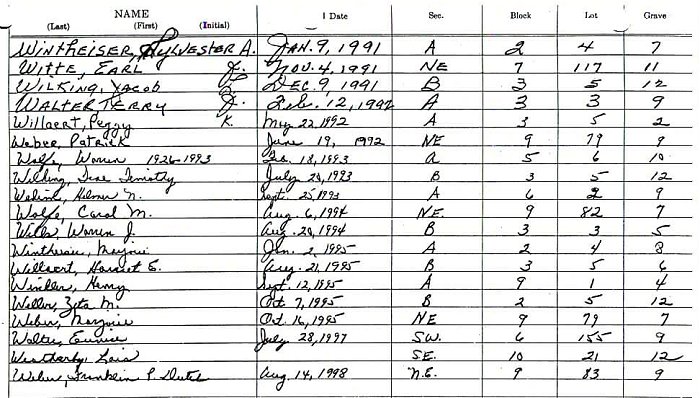 NAME 1 Date Sec. Block Lot Grave
(Last) (First) (Initial)
WINTHEISER, SYLVESTER A. JAN. 9, 1991 A 2 4 7
WITTE, EARL J. NOV. 4, 1991 NE 7 117 11
WILKING, JACOB DEC. 9, 1991 B 3 5 12
WALTER TERRY J. Feb. 12, 1992 A 3 3 9
Willaert, Peggy K. May 22, 1992 A 3 5 2
Weber, Patrick June 19, 1992 NE 9 79 9
Wolfe, Warren 1926-1993 18, 1993 a 5 6 10
Timothy July 20, 1993 B 3 5 12
N. Sept. 25, 1993 A 6 2 9
Wolfe, Carol M. Aug. 6, 1994 NE. 9 82 7
Wills, Warren J. Aug. 20, 1994 B 3 3 5
Wintheiser, Marjorie Jan. 2, 1995 A 2 4 8
Willaert, Harriet E. Aug. 21, 1995 B 3 5 6
Winkler, Henry Sept. 12, 1995 A 9 1 4
Weller, Zeta M. Oct 7, 1995 B 2 5 12
Weber, Marjorie Oct. 16, 1995 NE 9 79 7
Walter, Eunice July 28, 1997 SW. 6 155 9
Weatherby, Lois SE. 10 21 12
Weber, Franklin P. Dutch Aug. 14, 1998 N.E. 9 83 9